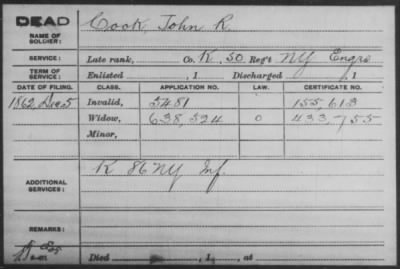 DEAD
NAME OF SOLDIER:
Cook, John R.
SERVICE:
Late rank, Co. K, 50 Reg't NY Engrs
TERM OF SERVICE:
Enlisted , 1 Discharged , 1
DATE OF FILING. CLASS. APPLICATION NO. LAW. CERTIFICATE NO.
1862, Dec 5 Invalid, 5481 155,613
Widow, 638,524 0 433,755
Minor,
ADDITIONAL SERVICES:
K 86 NY Inf.
REMARKS:
Died , 1 , at